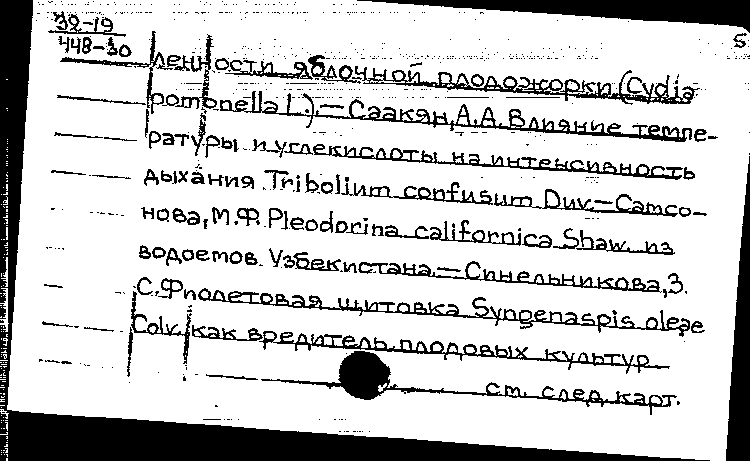 32-19
448-30
5
ленности яблочной плодожорки (Cydia
pomonella L.).— Саакян, А.А. Влияние темпе-
ратуры и углекислоты на интенсивность
дыхания Tribolium confusum Duv.— Самсо-
нова, М.Ф. Pleodorina californica Shaw. из
водоемов Узбекистана.— Синельникова, З.
С. Фиолетовая щитовка Syngenaspis oleae
Colv. как вредитель плодовых культур.—
см. след. карт.